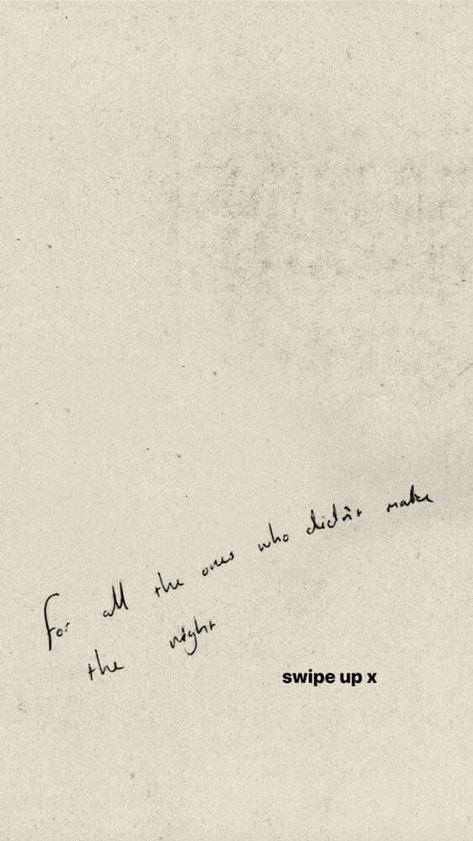 for all the ones who didn't make
the right
swipe up x